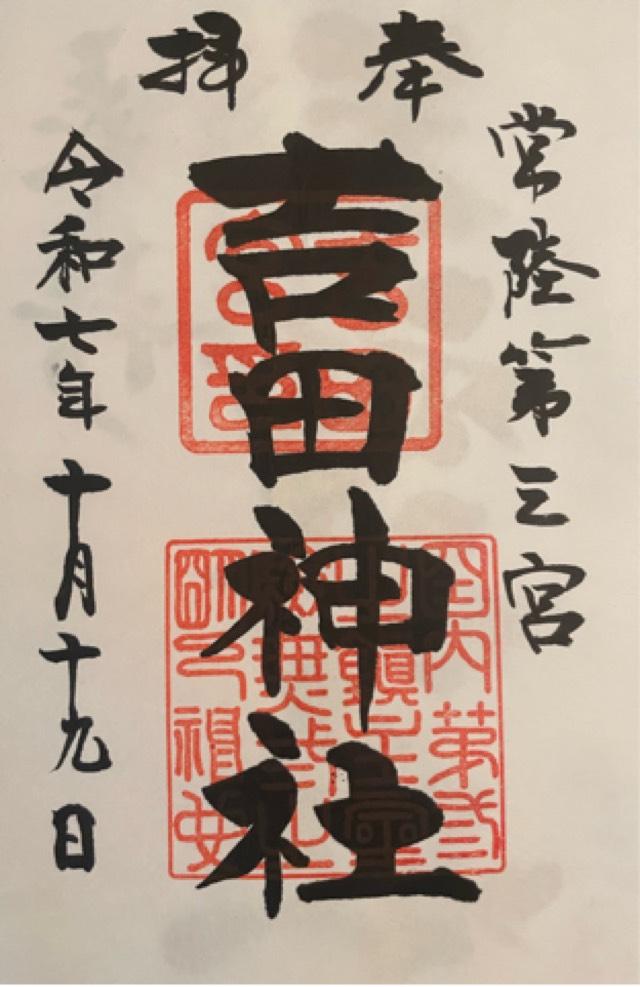 奉拝
常陸第三宮
吉田神社
令和七年十月十九日